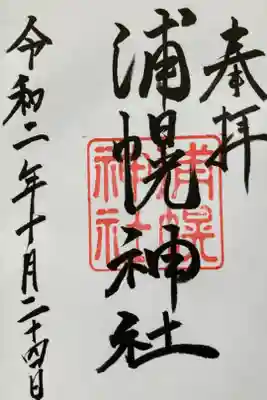 奉拝
浦幌神社
浦幌神社
令和二年十月二十四日